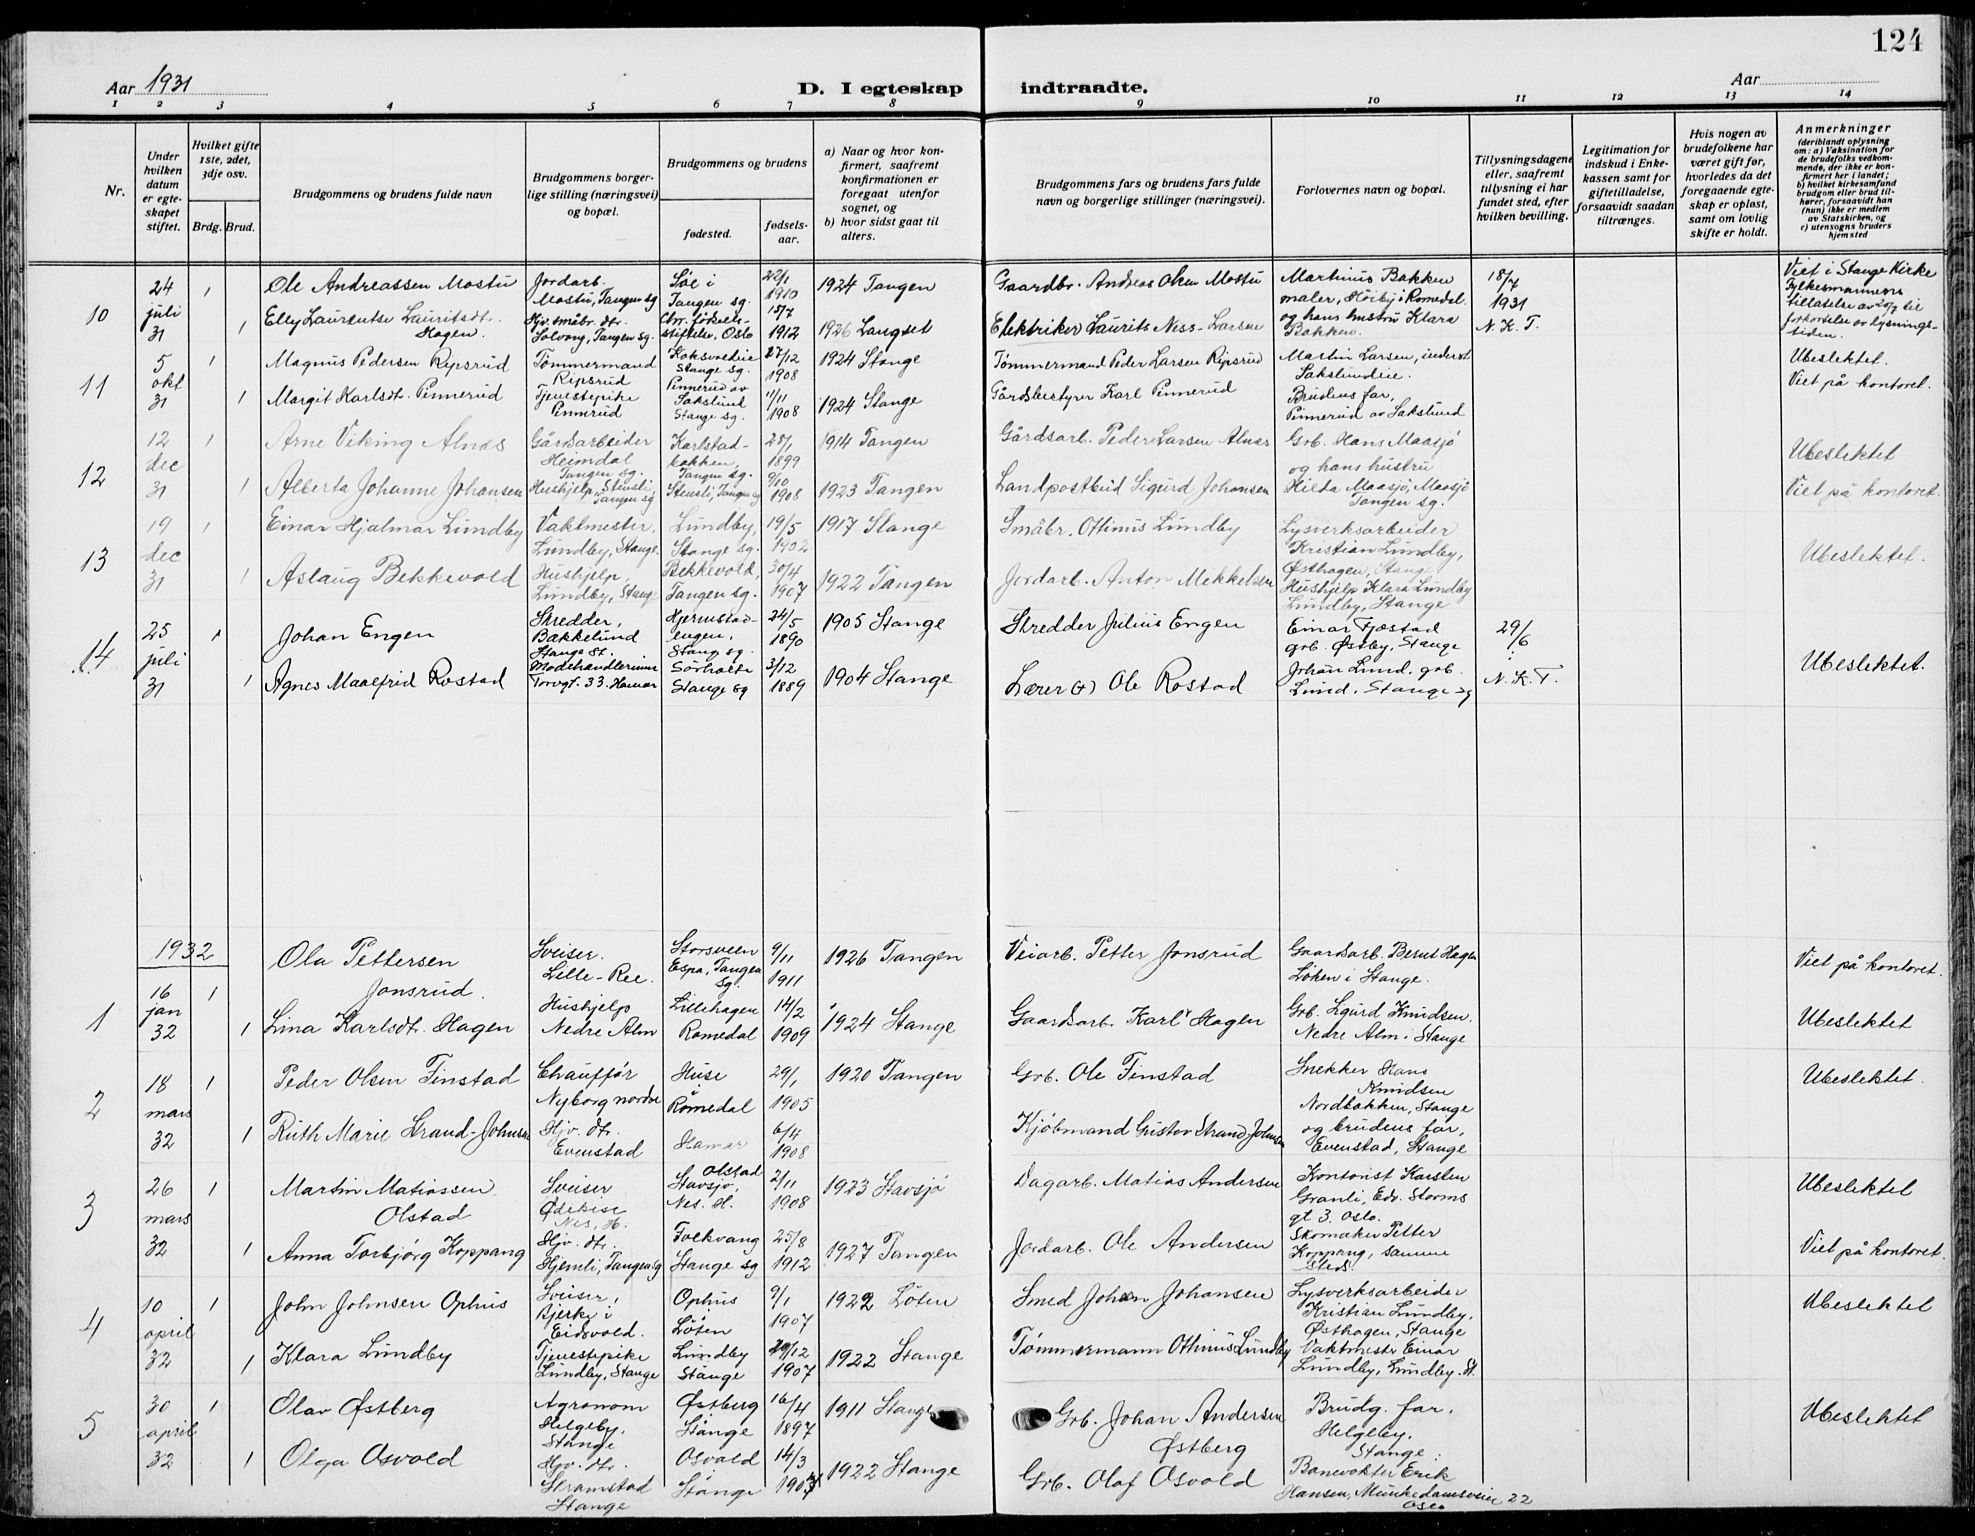 124
Aar 1931
D. I egteskap indtraadte.
Aar
1 2 3 4 5 6 7 8 9 10 11 12 13 14
Nr.
Under hvilken datum er egteskapet stiftet.
Hvilket gifte 1ste, 2det, 3dje osv.
Brdg. Brud.
Brudgommens og brudens fulde navn
Brudgommens borgerlige stilling (næringsvei) og bopæl.
Brudgommens og brudens
fødested.
fødselsaar.
a) Naar og hvor konfirmert, saafremt konfirmationen er foregaat utenfor sognet, og
b) hvor sidst gaat til alters.
Brudgommens fars og brudens fars fulde navn og borgerlige stillinger (næringsvei).
Forlovernes navn og bopæl.
Tillysningsdagene eller, saafremt tillysning ei har fundet sted, efter hvilken bevilling.
Legitimation for indskud i Enkekassen samt for giftetilladelse, forsaavidt saadan tiltrænges.
Hvis nogen av brudefolkene har været gift før, hvorledes da det foregaaende egteskap er opløst, samt om lovlig skifte er holdt.
Anmerkninger
(deriblandt oplysning om: a) Vaksination for de brudefolks vedkommende, der ikke er konfirmert her i landet; b) hvilket kirkesamfund brudgom eller brud tilhører, forsaavidt han (hun) ikke er medlem av Statskirken, og c) utensogns bruders hjemsted
10 24 juli 31 1 Ole Andreassen Mostu Jordarb. Mostu, Tangen sg Løe i Tangen sg. 22/1 1910 1924 Tangen Gaardbr. Andreas Olsen Mostu Martinus Bakken maler, Höiby i Romedal og hans hustru Klara Bakken. 18/7 1931 N. K. T. Viet i Stange Kirke Fylkesmannens tillatelse av 20/7 til forkortelse av lysningstiden.
1 Elly Laurentse Lauritsdt. Hagen. Hjv. småbr. dtr. Solvang, Tangen sg. Chr. fødselsstiftelse, Oslo 15/7 1912 1926 Langset Elektriker Laurits Ness-Larsen
11 5 okt 31 1 Magnus Pedersen Ripsrud Tømmermand Ripsrud Koksvedeie Stange sg. 27/12 1908 1924 Stange Tømmermand Peder Larsen Ripsrud Martin Larsen, inderst Sakslundeie. Ubeslektet.
1 Margit Karlsdt. Pinnerud Tjenestepike Pinnerud Pinnerud av Sakslund Stange sg. 11/11 1908 1924 Stange Gårdsbestyrer Karl Pinnerud Brudens far, Pinnerud av Sakslund Viet på kontoret.
12 12 dec 31 1 Arne Viking Alnæs Gårdsarbeider Heimdal Tangen sg. Karlstadbakken, Tangen sg. 1899 1914 Tangen Gårdsarb. Peder Larsen Alnæs Grb. Hans Maasjö og hans hustru Ubeslektet
1 Alberta Johanne Johansen Hushjelp, Stensli, Tangen sg Stensli, Tangen sg 9/10 1908 1923 Tangen Landpostbud Sigurd Johansen Hilda Maasjö, Maasjö Tangen sg. Viet på kontoret.
13 19 dec 31 1 Einar Hjalmar Lundby Vaktmester, Lundby, Stange. Lundby, Stange sg. 19/5 1902 1917 Stange Småbr. Othinus Lundby Lysverksarbeider Kristian Lundby, Østhagen, Stange Ubeslektet.
1 Aslaug Bekkevold Hushjelp, Lundby, Stange Bekkevold, Tangen sg. 30/4 1907 1922 Tangen Jordarb. Anton Mikkelsen Hushjelp Klara Lundby Lundby, Stange
14 25 juli 31 1 Johan Engen Skredder, Bakkelund Stange st. Hjermstadengen, Stang sg. 24/5 1890 1905 Stange Skredder Julius Engen Einar Fjæstad grb. Østby, Stange 29/6 N. K. T. Ubeslektet.
1 Agnes Maalfrid Rostad Modehandlerinne Torvgt. 33. Hamar Sörholte Stange sg 3/12 1889 1904 Stange Lærer (+) Ole Rostad Johan Lund, grb. Lund, Stange sg
1932
1 16 jan 32 1 Ola Pettersen Jonsrud. Sveiser. Lille-Ree. Storsveen Espa, Tangen sg. 9/11 1911 1926 Tangen Veiarb. Petter Jonsrud Gaardsarb. Bernt Hagen Løken i Stange. Viet på kontoret.
1 Lina Karlsdt. Hagen Hushjelp Nedre Alm Lillehagen Romedal 14/2 1909 1924 Stange Gaardsarb. Karl Hagen Grb. Sigurd Knudsen. Nedre Alm i Stange Ubeslektet
2 18 mars 32 1 Peder Olsen Finstad Chauffør Nyborg nordre Huse Romedal 29/1 1905 1920 Tangen Grb. Ole Finstad Snekker Hans Knudsen Nordbakken, Stange Ubeslektet.
1 Ruth Marie Strand-Johnsen Hjv. dtr. Evenstad Hamar 6/4 1908 Kjøbmand Gustav Strand-Johnsen og brudens far, Evenstad, Stange
3 26 mars 32 1 Martin Matiassen Olstad Sveiser Ødekise Nes, H. Olstad Stavsjø, Nes. H. 2/11 1908 1923 Stavsjø Dagarb. Matias Andersen Kontorist Karsten Granli, Edv. Storms gt 3. Oslo. Ubeslektet
1 Anna Torbjørg Koppang Hjv. dtr. Hjemli, Tangen sg Folkvang Stange sg 25/8 1912 1927 Tangen Jordarb. Ole Andersen Skomaker Petter Koppang, samme sted. Viet på kontoret.
4 10 april 32 1 John Johnsen Ophus Sveiser, Bjerke i Eidsvold. Ophus Løten 9/1 1907 1922 Løten Smed Johan Johansen Lysverksarbeider Kristian Lundby, Østhagen, Stange Ubeslektet
1 Klara Lundby Tjenestepike Lundby, Stange Lundby Stange 29/12 1907 1922 Stange Tømmermann Othinus Lundby Vaktmester Einar Lundby, Lundby. St.
5 30 april 32 1 Olav Østberg Agronom Helgeby, Stange Østberg Stange 16/4 1897 1911 Stange Grb. Johan Andersen Østberg Brudg. far, Helgeby, Stange. Ubeslektet
1 Olga Osvold Hjv. dtr. Stramstad Stange Osvold Stange 14/3 1907 1922 Stange Grb. Olaf Osvold Banevokter Erik Hansen, Munkedamsveien 22 Oslo